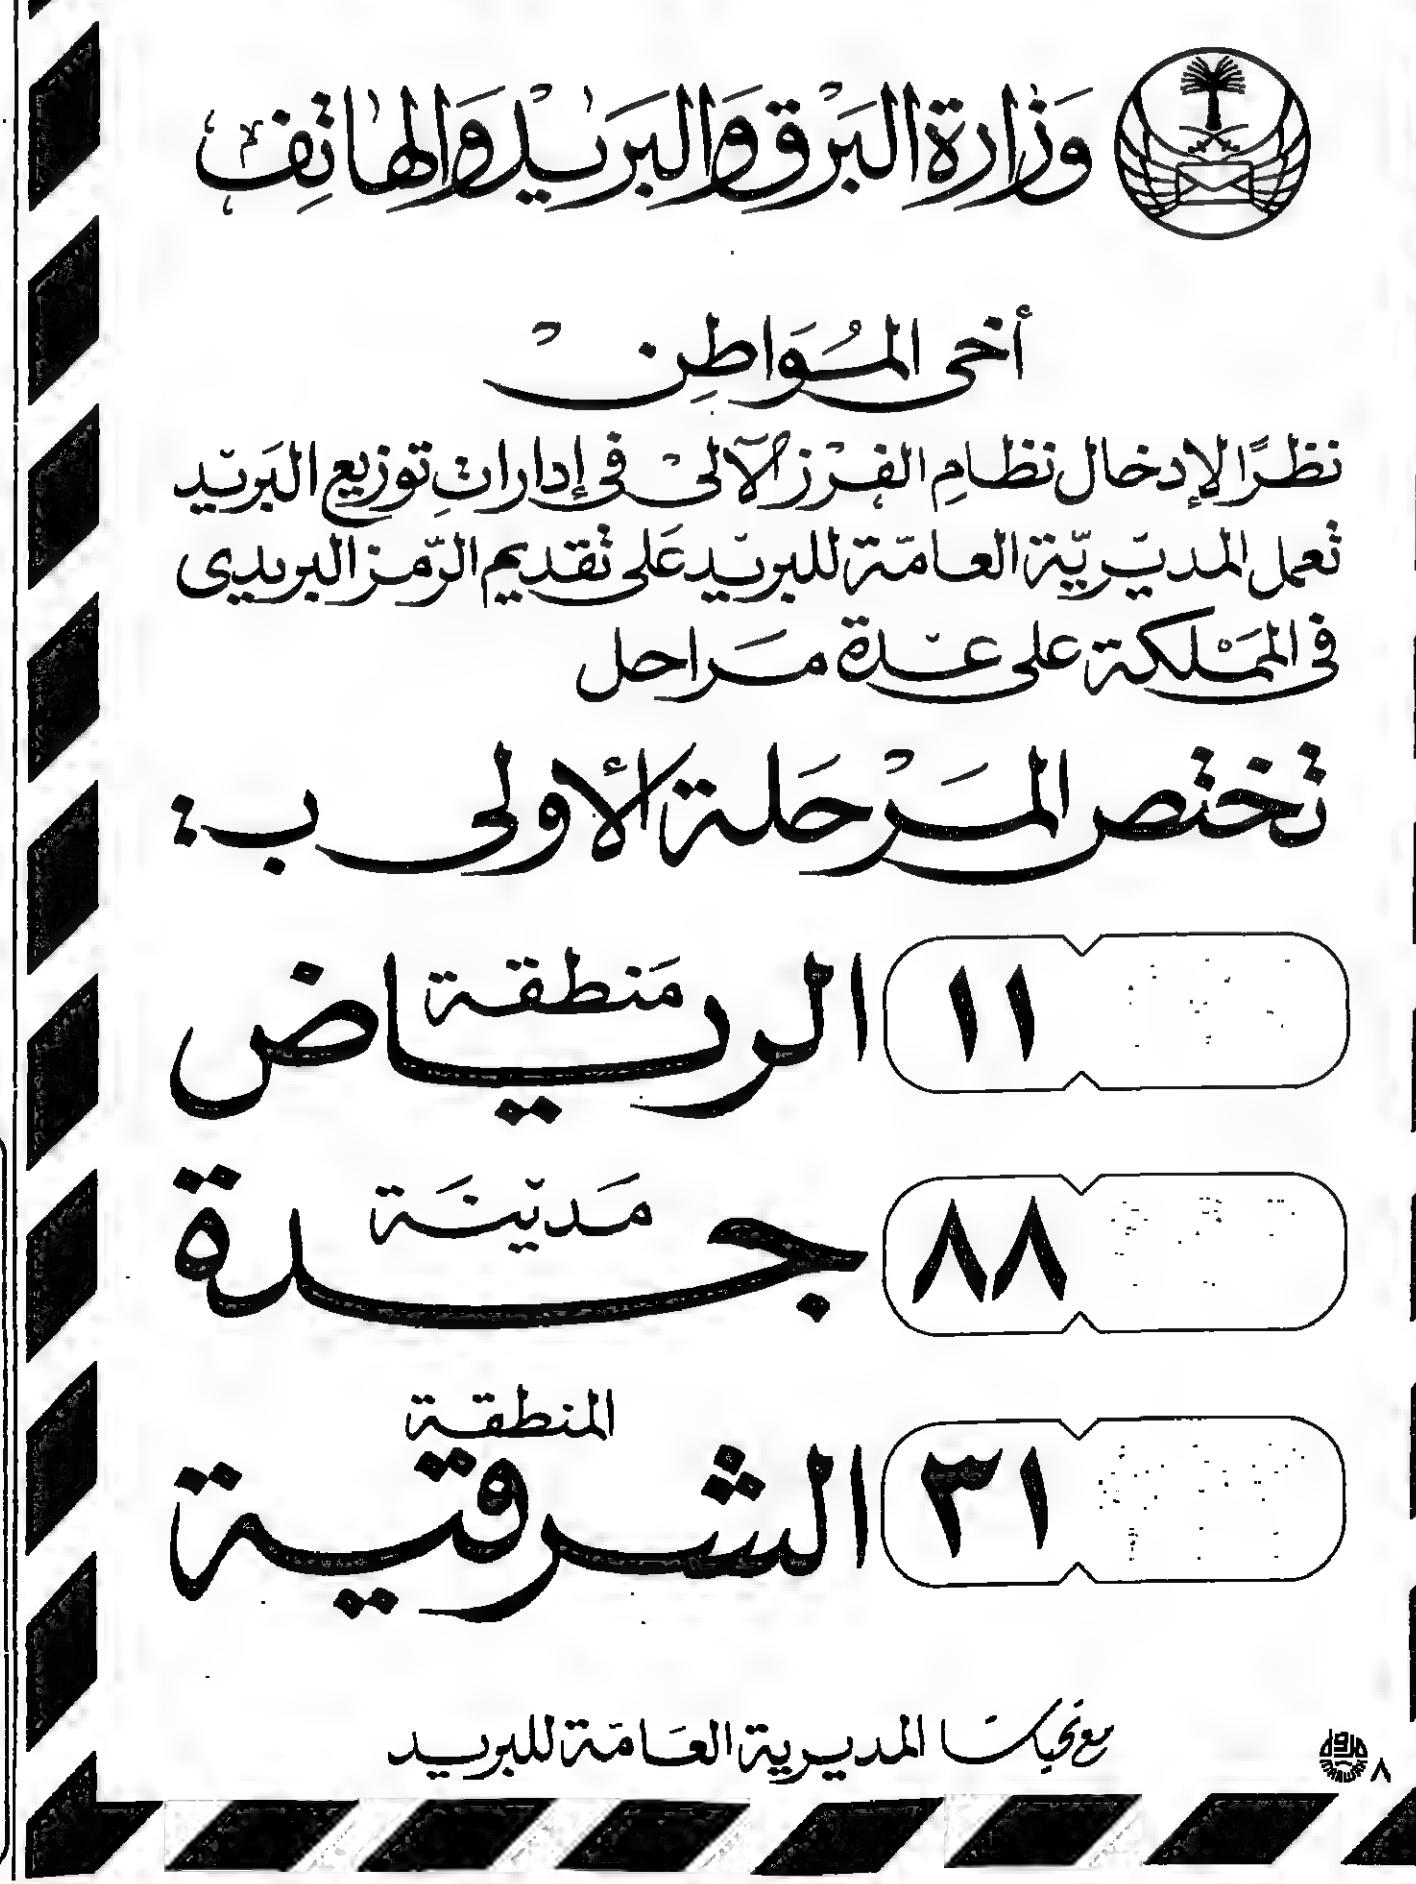 وَزارة البَرْق وَالبَرْيد وَالهاتِف
أخى المُوَاطِنْ
نظرًا لإدخال نظام الفرْز الآلى فى إداراتِ توزيع البَريْد
تعمل المديْريّة العامّة للبريْد عَلى تقديم الرّمز البريدى
فى المَمْلكة على عدة مَراحل
تختص المَرْحَلة الأولى ب :
١١
مَنطقة
الرياض
٨٨
مَديْنَة
جدة
٣١
المنطقة
الشرقية
مع تحيات المديرية العَامّة للبريد
٨